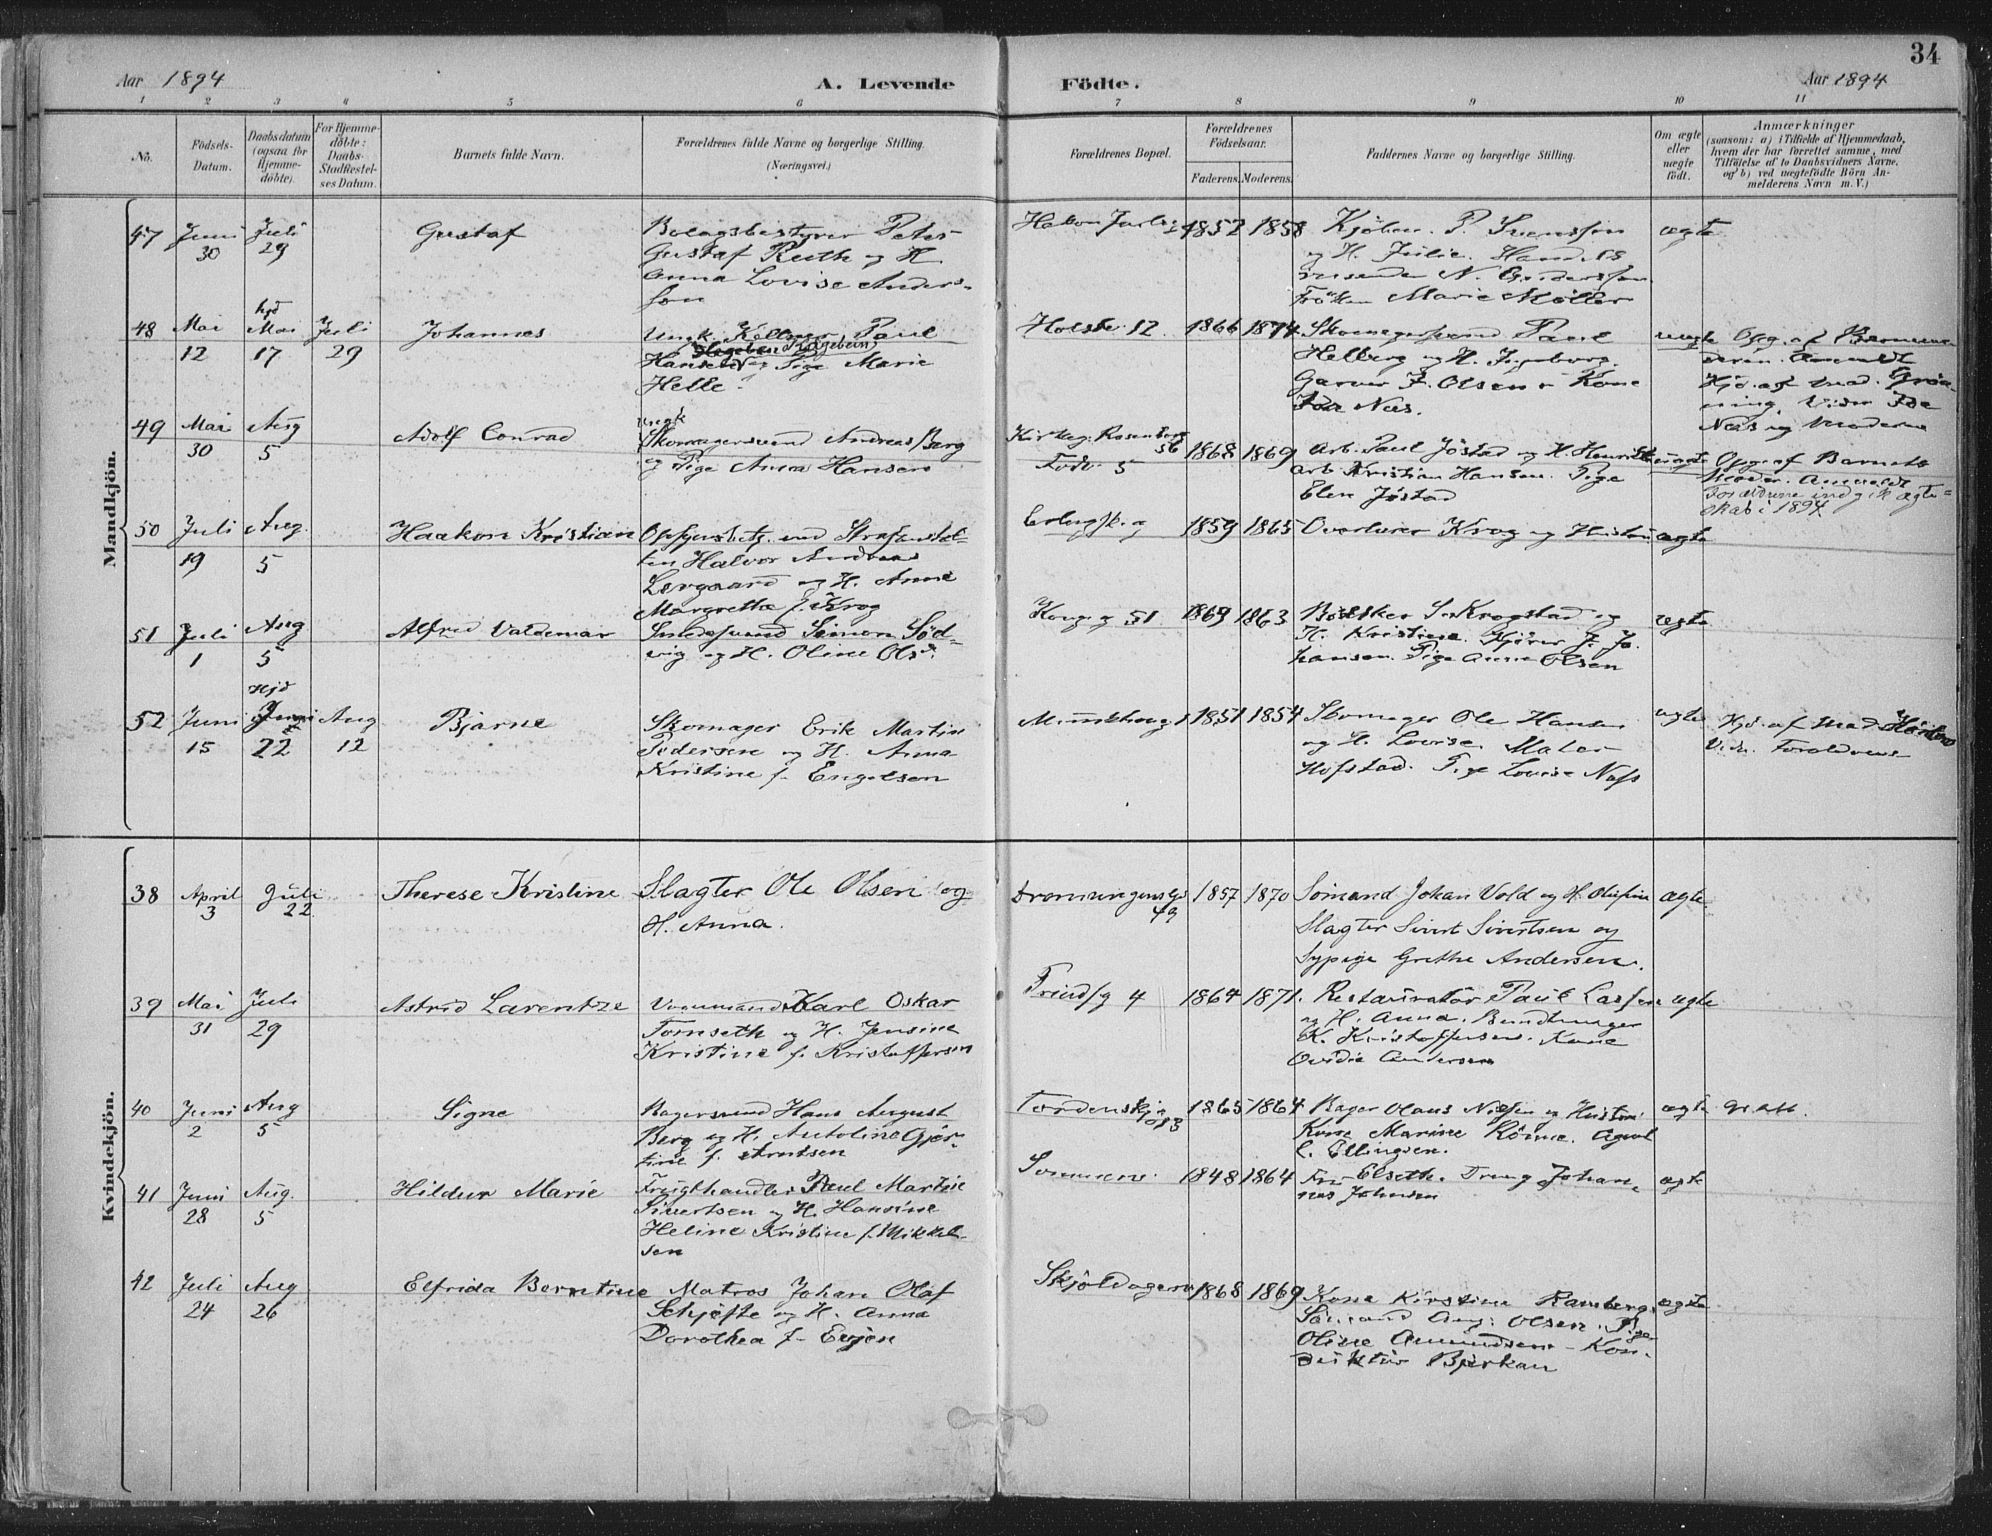 34
Aar 1894 A. Levende Födte. Aar 1894
1 2 3 4 5 6 7 8 9 10 11
No.
Födsels-
Datum.
Daabsdatum
(ogsaa for
Hjemme-
döbte).
For Hjemme-
döbte:
Daabs-
Stadfestel-
ses Datum.
Barnets fulde Navn.
Forældrenes fulde Navne og borgerlige Stilling.
(Næringsvei.)
Forældrenes Bopæl.
Forældrenes
Födselsaar.
Faderens. Moderens.
Faddernes Navne og borgerlige Stilling.
Om ægte
eller
uægte
födt.
Anmærkninger
(saasom: a) i Tilfælde af Hjemmedaab,
hvem der har forrettet samme, med
Tilföielse af to Daabsvidners Navne,
og b) ved uægtefödte Börn An-
melderens Navn m. V.)
Mandkjön.
47 Juni 30 Juli 29 Gustaf
Bolagsbestyrer Peter
Gustaf Ruth og H.
Anna Lovise Anders-
son
1852 1858
Kjöbm. P. Svensson
og H. Julie.
N. Gundersen
Fröken Marie Möller
ægte
48 Mai 12 hjd Mai 17 Juli 29 Johannes
Ungk. Kellner Paul
Hansen og Pige Marie
Helle.
1866 1874
Skomagersvend Paul
Helberg og H. Ingeborg.
Garver F. Olsen. Kone
Ida Næs.
uægte
Opg. af Barnemo-
deren
Hjd. af Mad. Grön-
ning. Vidn. Ida
Næs og Moderen
49 Mai 30 Aug 5 Adolf Conrad
Ungk
Skomagersvend Andreas Berg
og Pige Anna Hansen
1868 1869
Arb. Paul Jöstad og H. Henrikke
Arb. Kristian Hansen. Pige
Elen Jöstad
uægte
Opg. af Barnets
Moder. Anmeldt
Forældrene indgik Ægte-
skab i 1894
50 Juli 19 Aug. 5 Haakon Kristian
Opsynsbetj. ved Strafanstal-
ten Halvor Andreas
Levgaard og H. Anna
Margrethe f. Krog
1859 1865
Overlærer Krog og Hustru
ægte
51 Juli 1 Aug 5 Alfred Valdemar
Smedsvend Simon Söd-
vig og H. Oline Olsd.
Kong. g 51. 1869 1863
Bödker S. Krogstad og
H. Kristine. Kjörer J. Jo-
hansen. Pige Anna Olsen
ægte
52 Juni 15 Hjd Juni 22 Aug 12 Bjarne
Skomager Erik Martin
Pedersen og H. Anna
Kristine f. Engelsen
1851 1854
Skomager Ole Hansen
og H. Lovise. Maler
Hofstad. Pige Lovise Næss
ægte
Hjd. af Mad.
Vidn. Forældrene
Kvindekjön.
38 April 3 Juli 22 Therese Kristine
Slagter Ole Olsen og
H. Anna.
Dronningensgd
49 1857 1870
Sömand Johan Vold og H. Olufine
Slagter Sivert Sivertsen og
Sypige Grethe Andersen.
ægte
39 Mai 31 Juli 29 Astrid Larentze
Vognmand Karl Oskar
Tornseth og H. Jensine
Kristine f. Kristoffersen
1864 1871.
Restauratör Paul Larsen
og H. Anna. Bundtmager
K. Kristoffersen. Kone
Ovidia Andersen
ægte
40 Juni 2 Aug 5 Signe
Bagersvend Hans August
Berg og H. Antoline Gjer-
tine f. Arntsen
1865 1864
Bager Olaus Nilsen og Hustru.
Kone Marine Rönne. Agent
C. Ellingsen.
ægte
41 Juni 28 Aug. 5 Hildur Marie
Frugthandler Paul Martin
Sivertsen og H. Hansine
Heline Kristine f. Mikkel-
sen
1848 1864
Fru Elseth. Johan-
nes Johnsen
ægte
42 Juli 24 Aug 26 Elfrida Berntine
Matros Johan Olaf
Schjefte og H. Anna
Dorothea f. Evjen
1868 1869
Kone Kirstine Ramberg.
Sömand Aug: Olsen. Pige
Oline Amundsen - Kon-
duktör Bjerkan
ægte